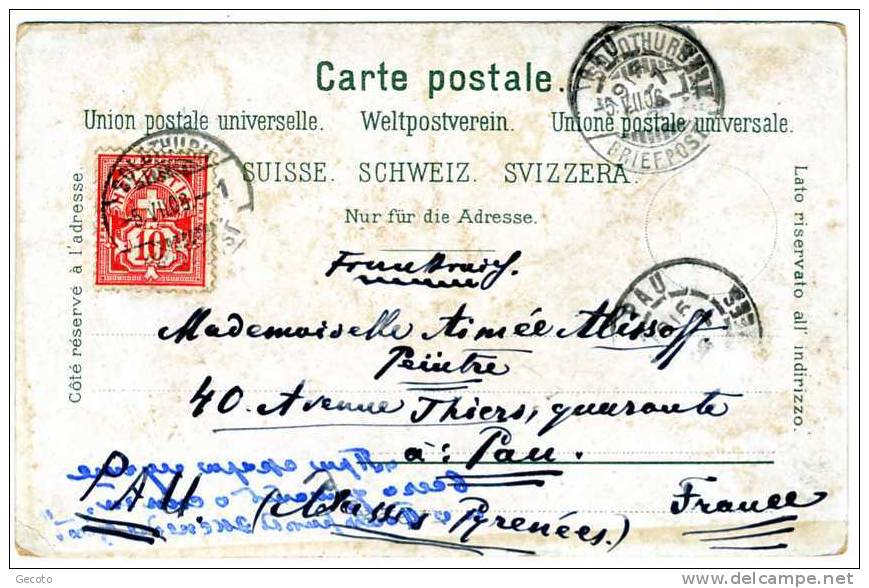 Carte postale.
Union postale universelle. Weltpostverein. Unione postale universale.
SUISSE. SCHWEIZ. SVIZZERA.
Nur für die Adresse.
Côté réservé à l'adresse.
Lato riservato all' indirizzo.
HELVETIA
10
SOLOTHURN
VII.06
BRIEFPOST
PAU
Frankreich.
Mademoiselle Aimée Alissoff
Peintre
40. Avenue Thiers, quarante
à: Pau.
PAU. (Basses Pyrenées.) France
Gecoto
delcampe.net